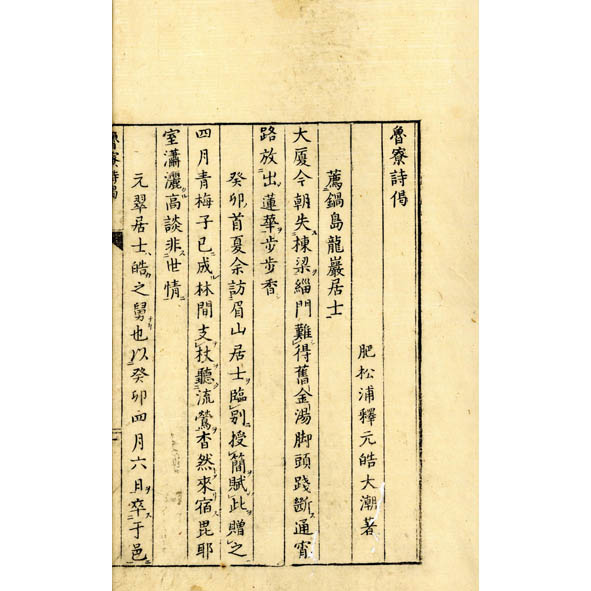 魯寮詩偈
肥松浦釋元皓大潮著
薦鍋島龍巖居士
大厦今朝失棟梁緇門難得舊金湯脚頭踐斷通宵
路放出蓮華步步香
癸卯首夏余訪眉山居士臨別授簡賦此贈之
四月青梅子已成林間支杖聽流鶯杳然來宿毘耶
室瀟灑高談非世情
元翠居士皓之舅也以癸卯四月六日卒于邑
魯寮詩偈